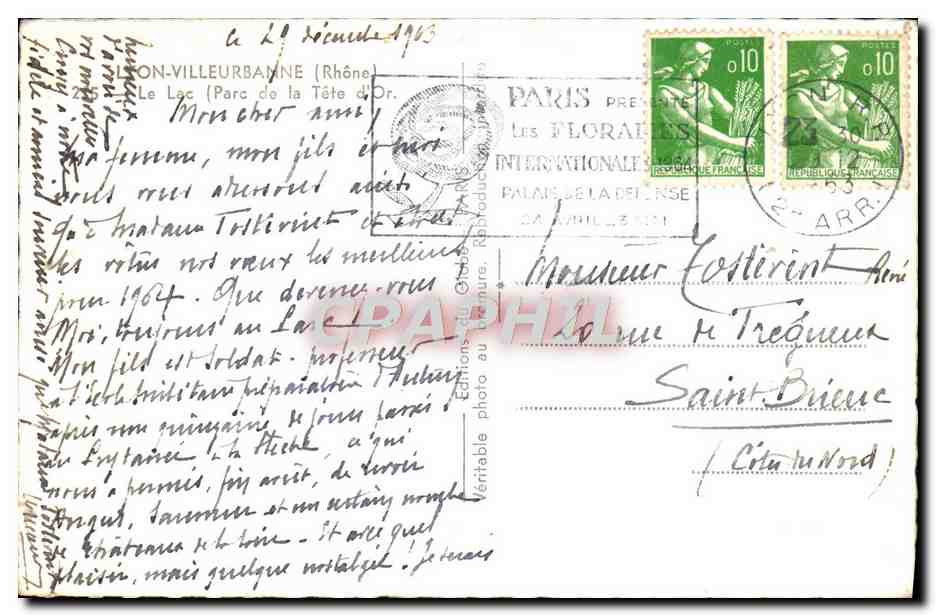 ce 29 décembre 1963
LYON-VILLEURBANNE (Rhône)
215 Le Lac (Parc de la Tête d'Or.
Mon cher ami,
Ma femme, mon fils et moi
vous vous adressons ainsi
qu'à Madame Tostivint et chez
les vôtres nos vœux les meilleurs
pour 1964. Que devenez-vous
Moi, toujours au Lac!
Mon fils est soldat - professeur
à l'école militaire préparatoire d'Autun
après une quinzaine de jours passés
au Prytanée à la Flèche ce qui
nous a permis, fin août, de revoir
Angers, Saumur et un certain nombre
de châteaux de la Loire - Et avec quel
plaisir, mais quelque nostalgie! Je serais
heureux
d'avoir de
vos nouvelles
Croyez à notre
fidèle et amical souvenir ainsi que Madame Tostivint
Editions du Globe PARIS
Véritable photo au bromure. Reproduction interdite
PARIS PRESENTE
LES FLORALIES
INTERNATIONALES 1964
PALAIS DE LA DEFENSE
24 AVRIL - 3 MAI
POSTES
0,10
REPUBLIQUE FRANÇAISE
POSTES
0,10
REPUBLIQUE FRANÇAISE
23 30
2e ARR.
Monsieur Tostivint René
20 rue de Trégueux
Saint-Brieuc
(Côtes du Nord)
CPAPHIL